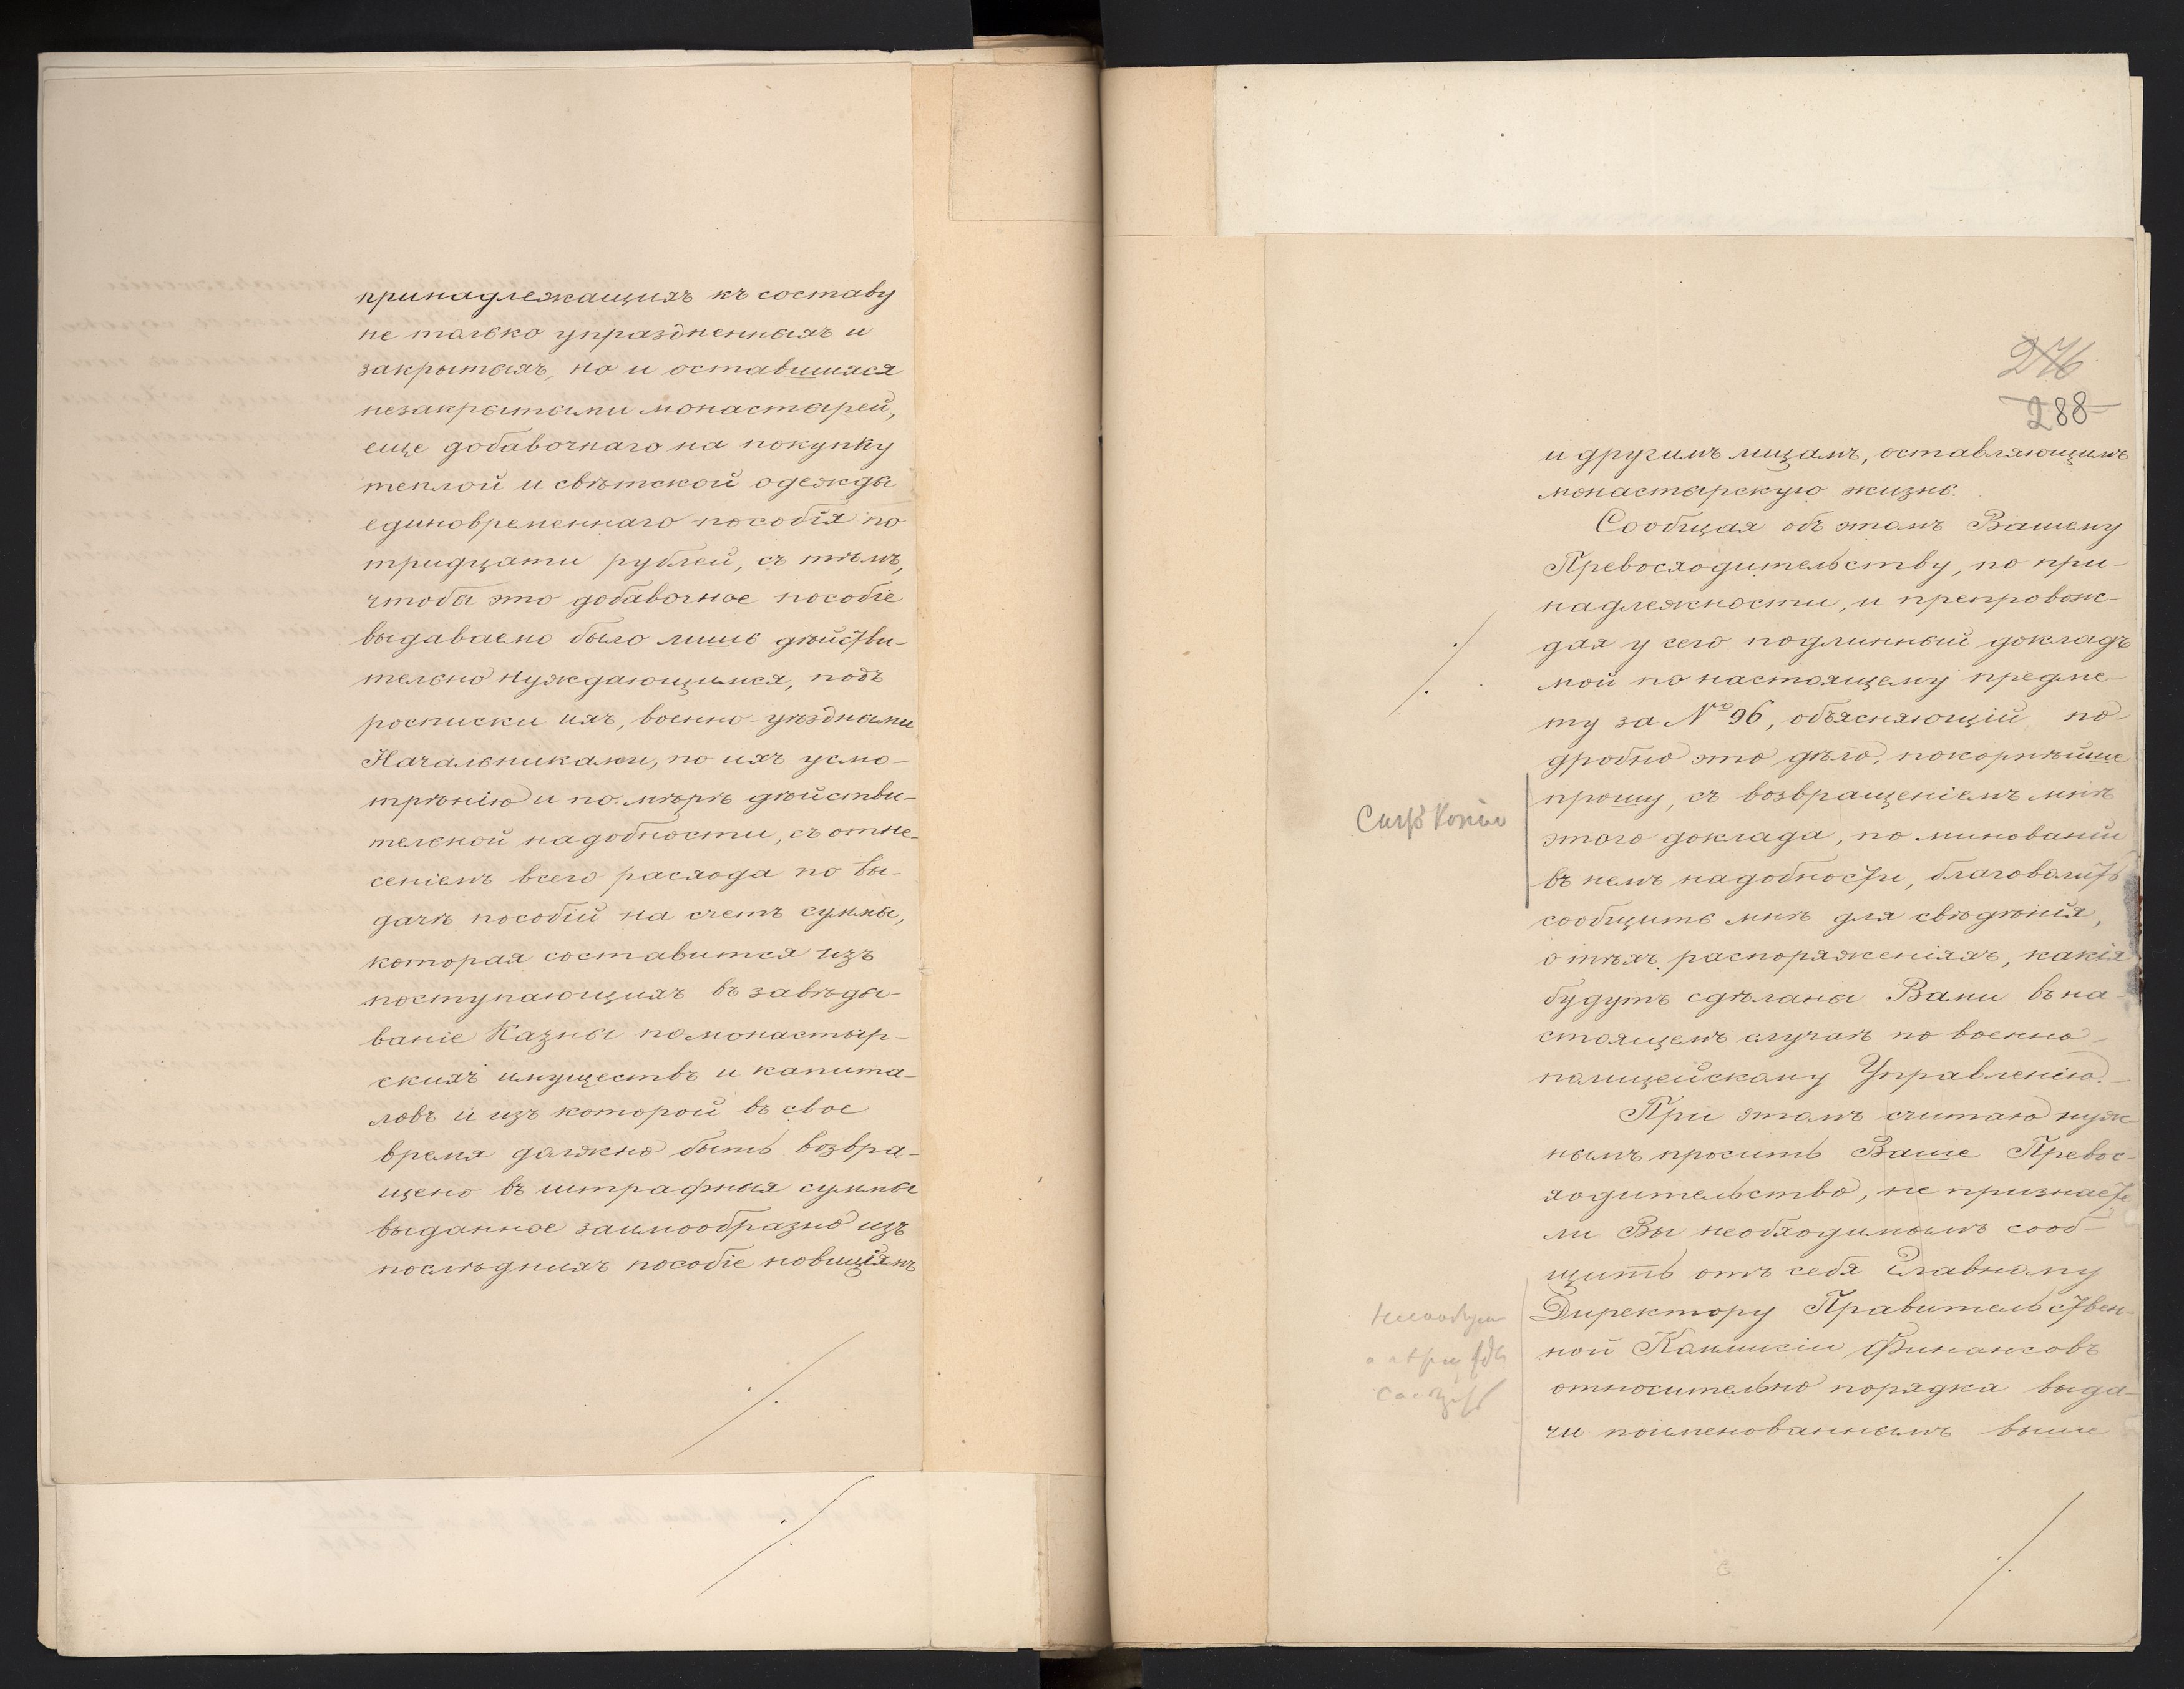 принадлежащихъ къ составу
не только упраздненныхъ и
закрытыхъ, но и оставшихся
незакрытыми монастырей,
еще добавочнаго на покупку
теплой и свѣтской одежды
единовременнаго пособія по
тридцати рублей, съ тѣмъ,
чтобы это добавочное пособіе
выдаваемо было лишь дѣйстви-
тельно нуждающимся, подъ
росписки ихъ, военно-уѣздными
Начальниками, по ихъ усмо-
трѣнію и по мѣрѣ дѣйстви-
тельной надобности, съ отне-
сеніемъ всего расхода по вы-
дачѣ пособій на счетъ суммы,
которая составится изъ
поступающихъ въ завѣды-
ваніе Казны по монастыр-
скихъ имуществъ и капита-
ловъ и изъ которой въ свое
время должно быть возвра-
щено въ штрафныя суммы
выданное заимообразно изъ
послѣднихъ пособіе новиціямъ
276
288
и другимъ лицамъ, оставляющимъ
монастырскую жизнь.
Сообщая объ этомъ Вашему
Превосходительству, по при-
надлежности, и препровож-
дая у сего подлинный докладъ
мой по настоящему предме-
ту за № 96, объясняющій по-
дробно это дѣло, покорнѣйше
прошу, съ возвращеніемъ мнѣ
этого доклада, по минованіи
въ немъ надобности, благоволить
сообщить мнѣ для свѣдѣнія,
о тѣхъ распоряженіяхъ, какія
будутъ сдѣланы Вами въ на-
стоящемъ случаѣ по военно-
полицейскому Управленію.
При этомъ считаю нуж-
нымъ просить Ваше Превос-
ходительство, не признаете
ли Вы необходимымъ сооб-
щить отъ себя Главному
Директору Правительствен-
ной Коммисіи Финансовъ
относительно порядка выда-
чи поименованнымъ выше